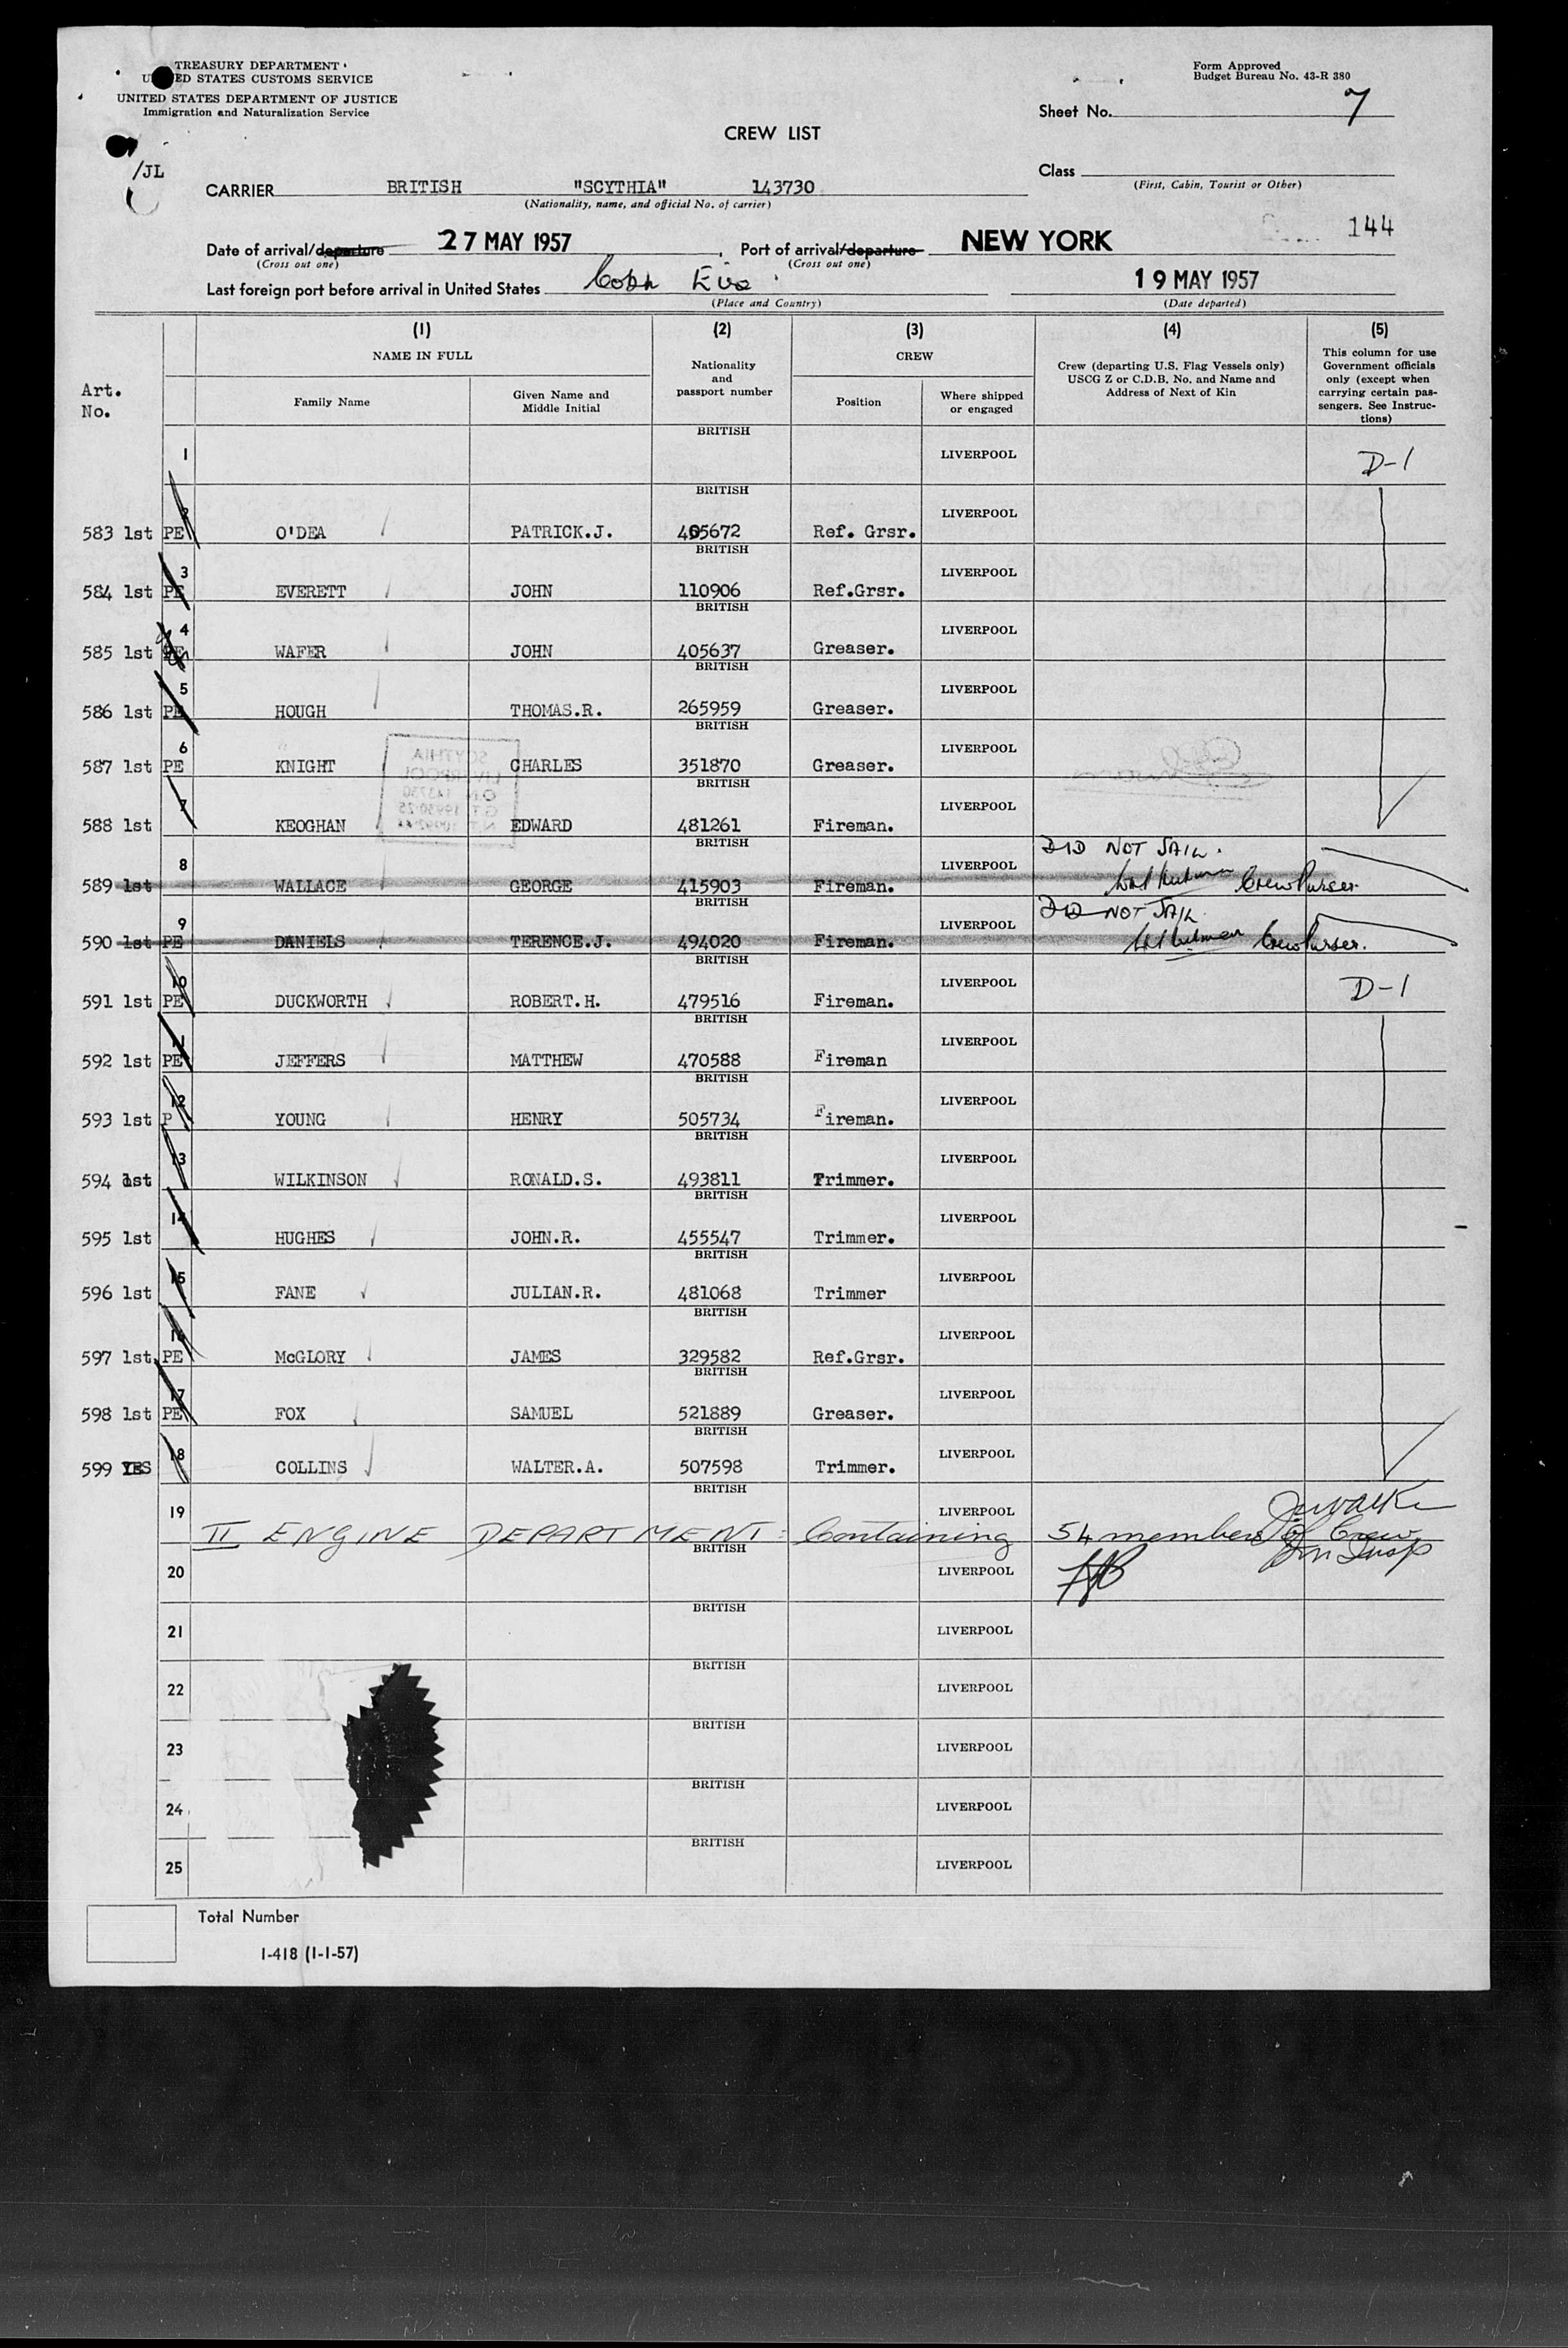 TREASURY DEPARTMENT
UNITED STATES CUSTOMS SERVICE
UNITED STATES DEPARTMENT OF JUSTICE
Immigration and Naturalization Service
Form Approved
Budget Bureau No. 43-R 380
Sheet No. 7
CREW LIST
/JL
Class
(First, Cabin, Tourist or Other)
CARRIER BRITISH "SCYTHIA" 143730
(Nationality, name, and official No. of carrier)
144
Date of arrival/departure 27 MAY 1957, Port of arrival/departure NEW YORK
(Cross out one) (Cross out one)
Last foreign port before arrival in United States Cobh Eire 19 MAY 1957
(Place and Country) (Date departed)
(1) (2) (3) (4) (5)
NAME IN FULL
Nationality and passport number
CREW
Crew (departing U.S. Flag Vessels only) USCG Z or C.D.B. No. and Name and Address of Next of Kin
This column for use Government officials only (except when carrying certain passengers. See Instructions)
Art. No.
Family Name Given Name and Middle Initial Position Where shipped or engaged
BRITISH
1 LIVERPOOL D-1
BRITISH
2 LIVERPOOL
583 1st PE O'DEA PATRICK.J. 405672 Ref. Grsr.
BRITISH
3 LIVERPOOL
584 1st PE EVERETT JOHN 110906 Ref.Grsr.
BRITISH
4 LIVERPOOL
585 1st PE WAFER JOHN 405637 Greaser.
BRITISH
5 LIVERPOOL
586 1st PE HOUGH THOMAS.R. 265959 Greaser.
BRITISH
6 LIVERPOOL
587 1st PE KNIGHT CHARLES 351870 Greaser.
BRITISH
7 LIVERPOOL
588 1st KEOGHAN EDWARD 481261 Fireman.
BRITISH
8 LIVERPOOL DID NOT SAIL.
589 1st WALLACE GEORGE 415903 Fireman. Crew Purser.
BRITISH
9 LIVERPOOL DID NOT SAIL.
590 1st PE DANIELS TERENCE.J. 494020 Fireman. Crew Purser.
BRITISH
10 LIVERPOOL D-1
591 1st PE DUCKWORTH ROBERT.H. 479516 Fireman.
BRITISH
11 LIVERPOOL
592 1st PE JEFFERS MATTHEW 470588 Fireman
BRITISH
12 LIVERPOOL
593 1st P YOUNG HENRY 505734 Fireman.
BRITISH
13 LIVERPOOL
594 1st WILKINSON RONALD.S. 493811 Trimmer.
BRITISH
14 LIVERPOOL
595 1st HUGHES JOHN.R. 455547 Trimmer.
BRITISH
15 LIVERPOOL
596 1st FANE JULIAN.R. 481068 Trimmer
BRITISH
16 LIVERPOOL
597 1st. PE McGLORY JAMES 329582 Ref.Grsr.
BRITISH
17 LIVERPOOL
598 1st PE FOX SAMUEL 521889 Greaser.
BRITISH
18 LIVERPOOL
599 YES COLLINS WALTER.A. 507598 Trimmer.
BRITISH
19 LIVERPOOL
II ENGINE DEPARTMENT: Containing 54 members of Crew
Imm Insp
BRITISH
20 LIVERPOOL
BRITISH
21 LIVERPOOL
BRITISH
22 LIVERPOOL
BRITISH
23 LIVERPOOL
BRITISH
24 LIVERPOOL
BRITISH
25 LIVERPOOL
Total Number
I-418 (1-1-57)